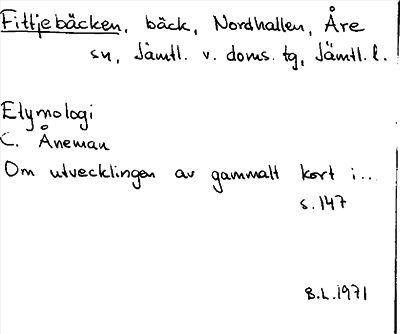 Fittjebäcken, bäck, Nordhallen, Åre
sn, Jämtl. v. doms. tg, Jämtl. l.
Etymologi
C. Åneman
Om utvecklingen av gammalt kort i...
s. 147
B.L. 1971